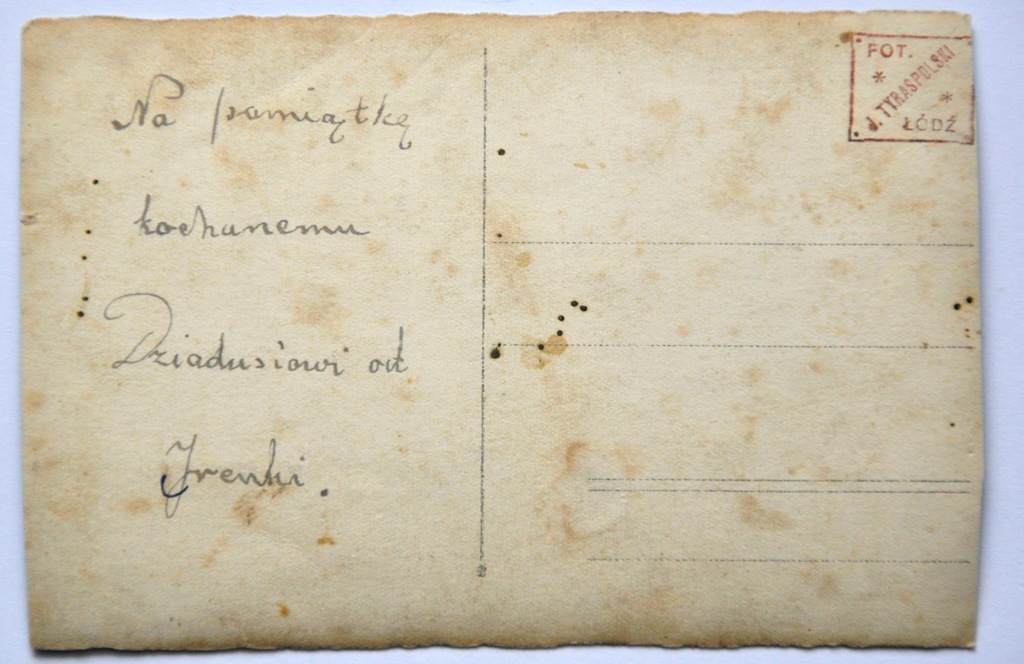 Na pamiątkę
kochanemu
Dziadusiowi od
Irenki.
FOT.
J. TYRASPOLSKI
ŁÓDŹ